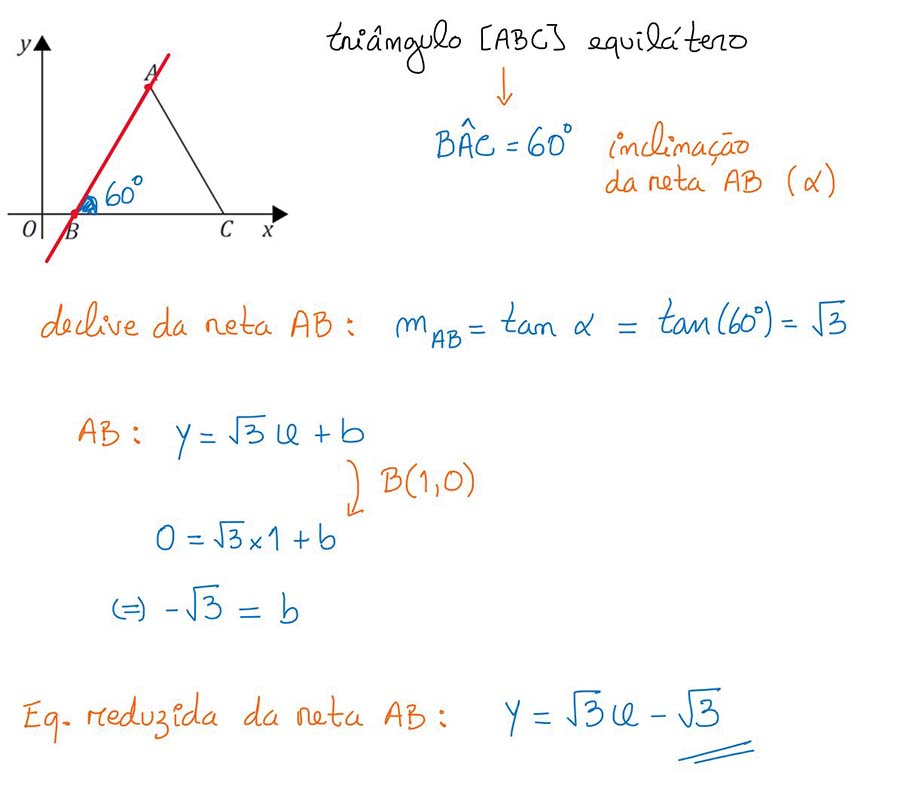 triângulo [ABC] equilátero
y
A
BÂC = 60° inclinação
da reta AB (α)
60°
O B C x
declive da reta AB : m_AB = tan α = tan(60°) = √3
AB : y = √3 x + b
B(1,0)
0 = √3 × 1 + b
(=) -√3 = b
Eq. reduzida da reta AB : y = √3 x - √3